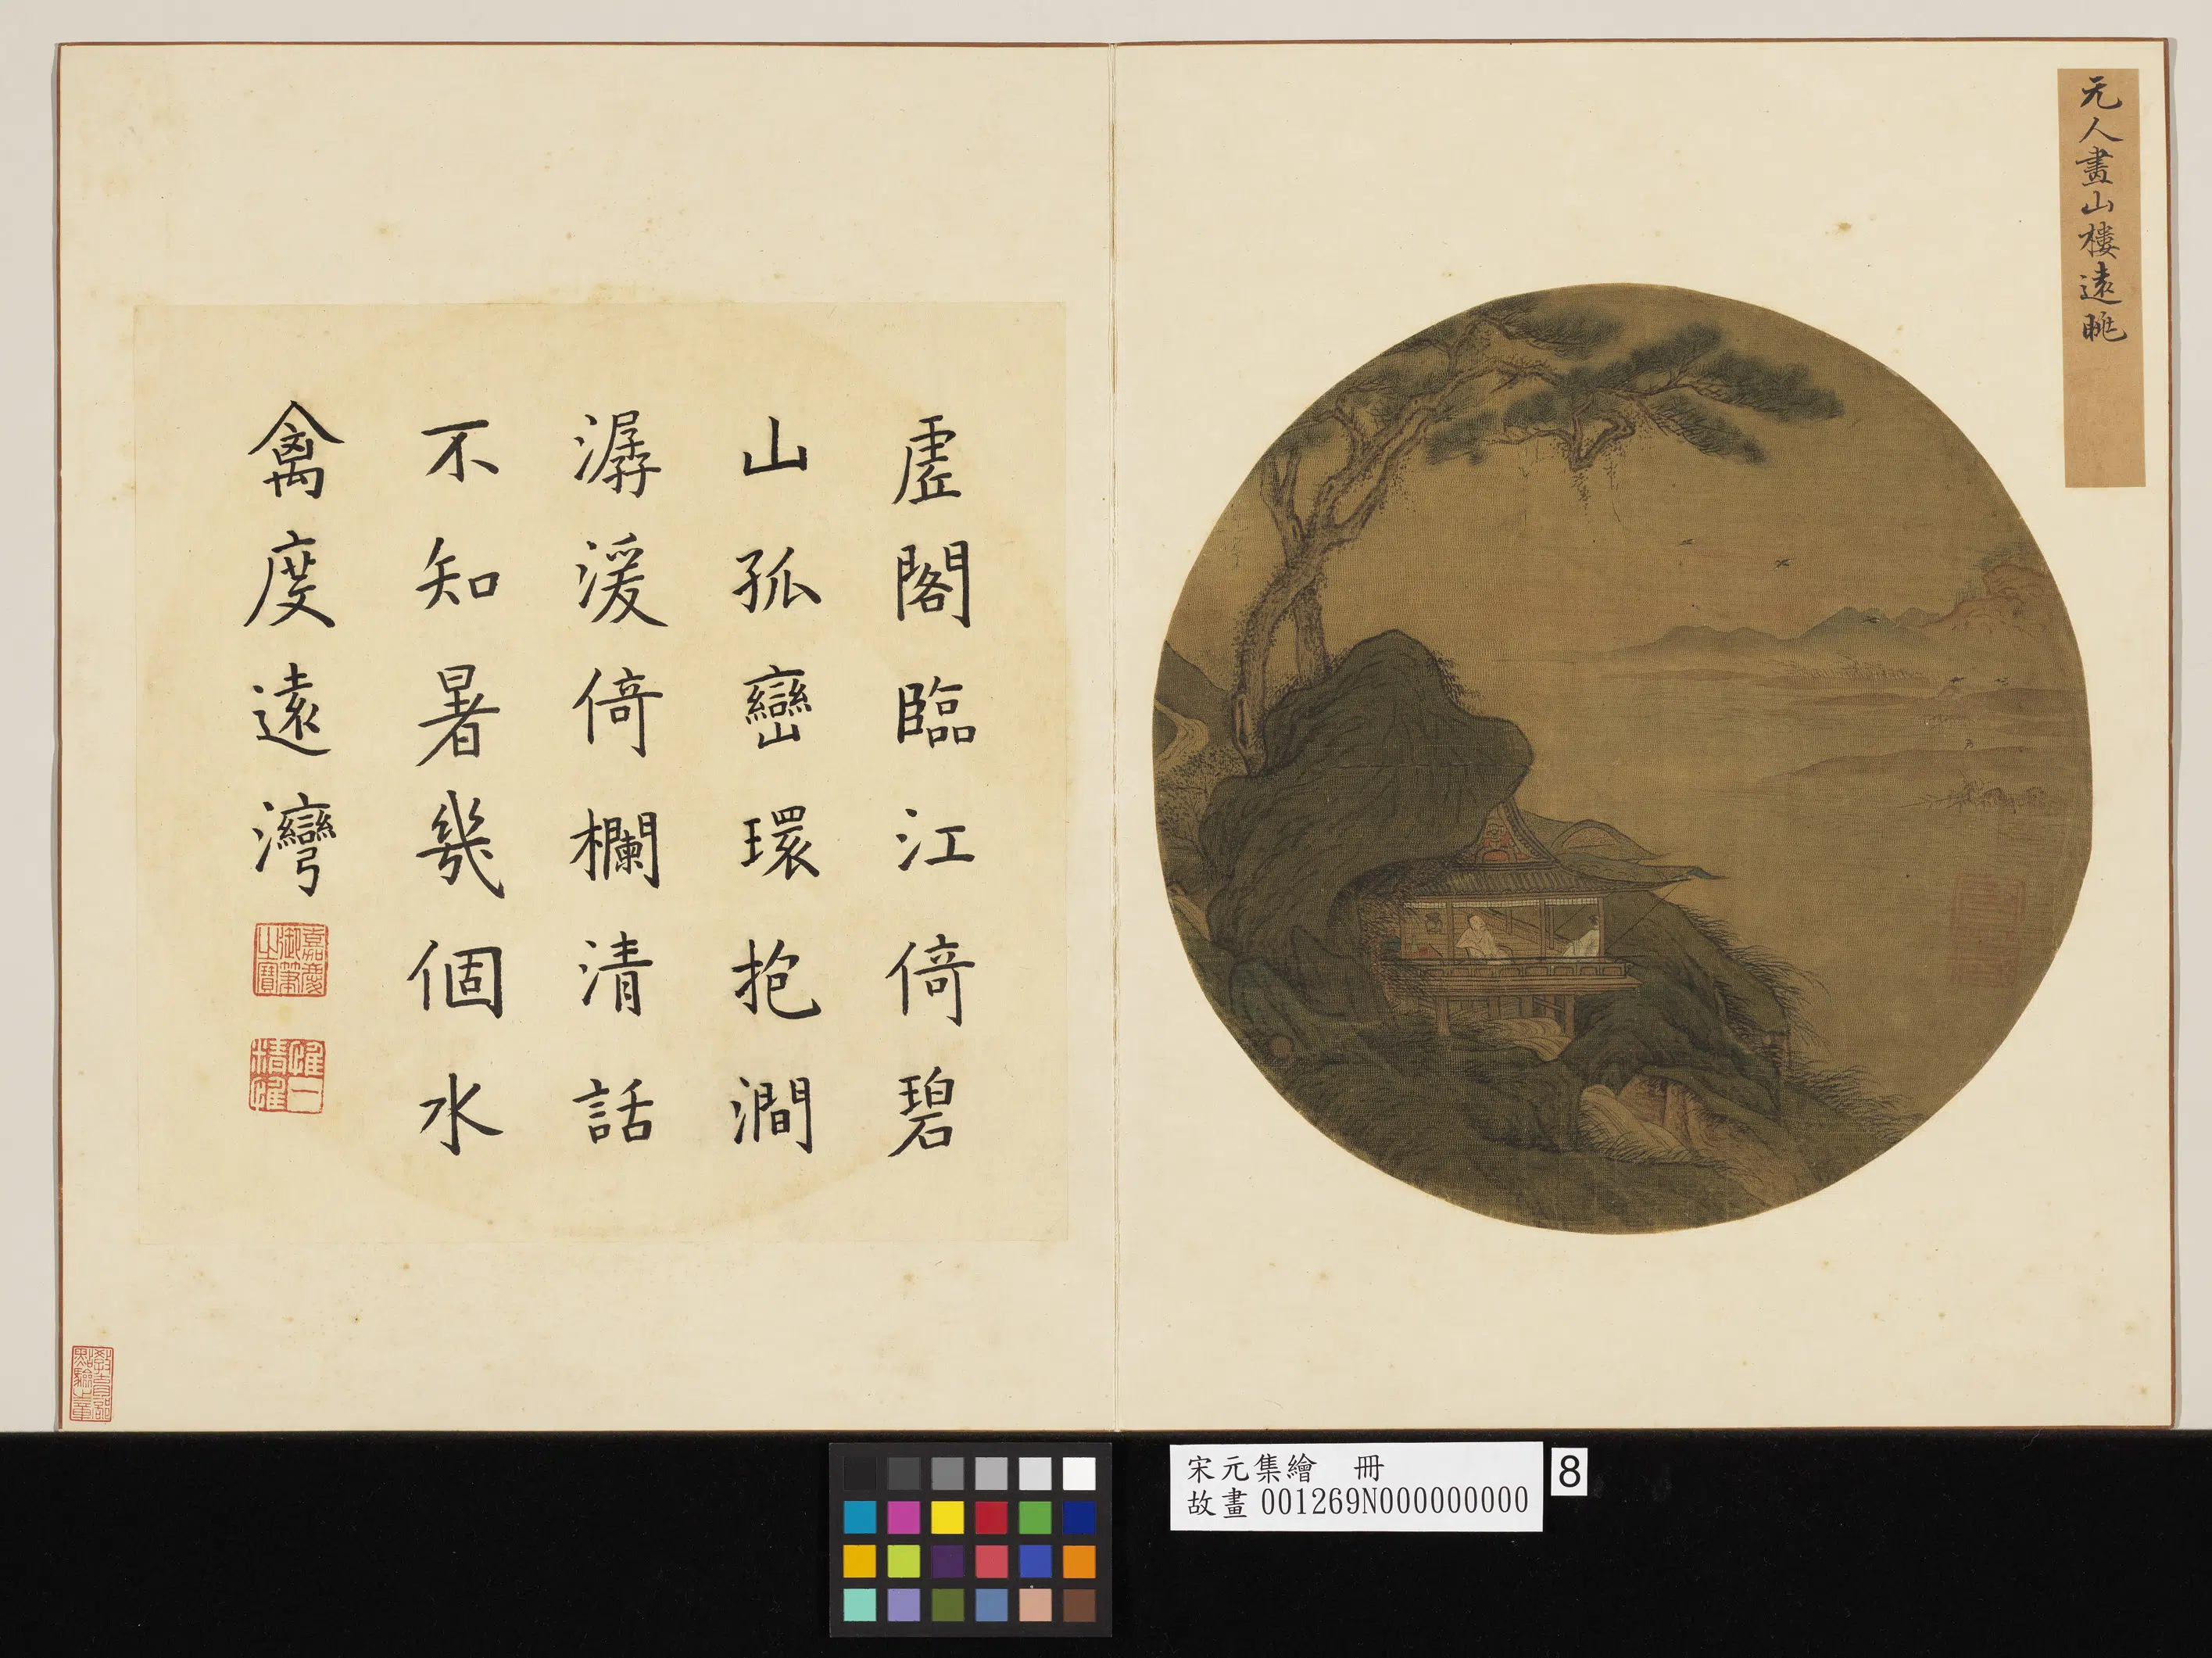 元人畫山樓遠眺
虛閣臨江倚碧
山孤巒環抱澗
潺湲倚欄清話
不知暑幾個水
禽度遠灣
嘉慶
御筆
之寶
惟一
精惟
宋元集繪 冊
故畫 001269N000000000
8